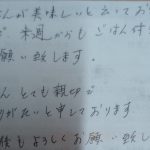 んが美味しいと云ってお
で 来週からも ごはん付
願い致します。
ん とても親切で
りがたいと申しております
後もよろしくお願い致し